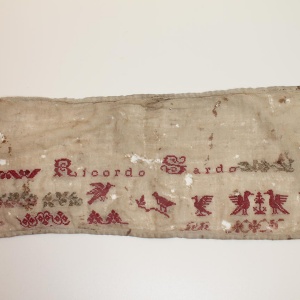 Ricordo Sardo